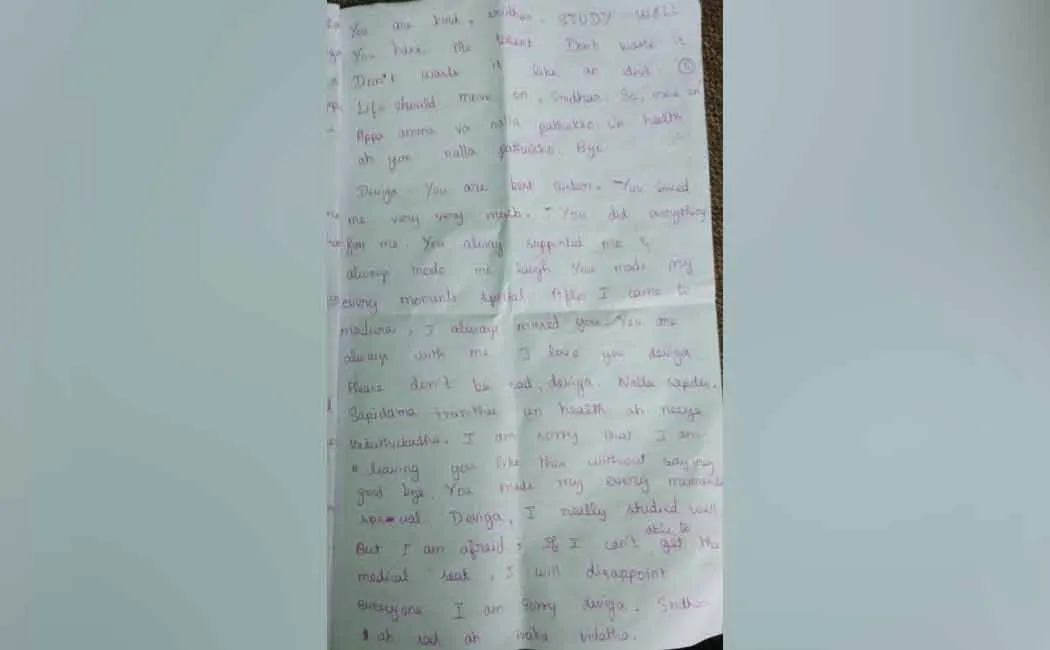 You are kind, sridhar. STUDY WELL
You have the talent Don't waste it
Don't waste it like an idiot. 5
Life should move on, Sridhar. So, move on
Appa amma va nalla pathukko. Un health
ah yum nalla pathukko. Bye
Deviga You are best sister. You loved
me very very much. You did everything
for me. You always supported me &
always made me laugh You made my
every moments special. After I came to
madurai, I always missed you. You are
always with me I love you deviga
Please don't be sad, deviga. Nalla sapidu.
Sapidama irunthu un health ah neeye
I am sorry that I am
leaving you like this without saying
good bye. You made my every moments
Deviga, I really studied well
But I am afraid, If I can't able to get the
medical seat, I will disappoint
everyone I am sorry deviga. Sridhar
ah sad ah iruka vidatha.